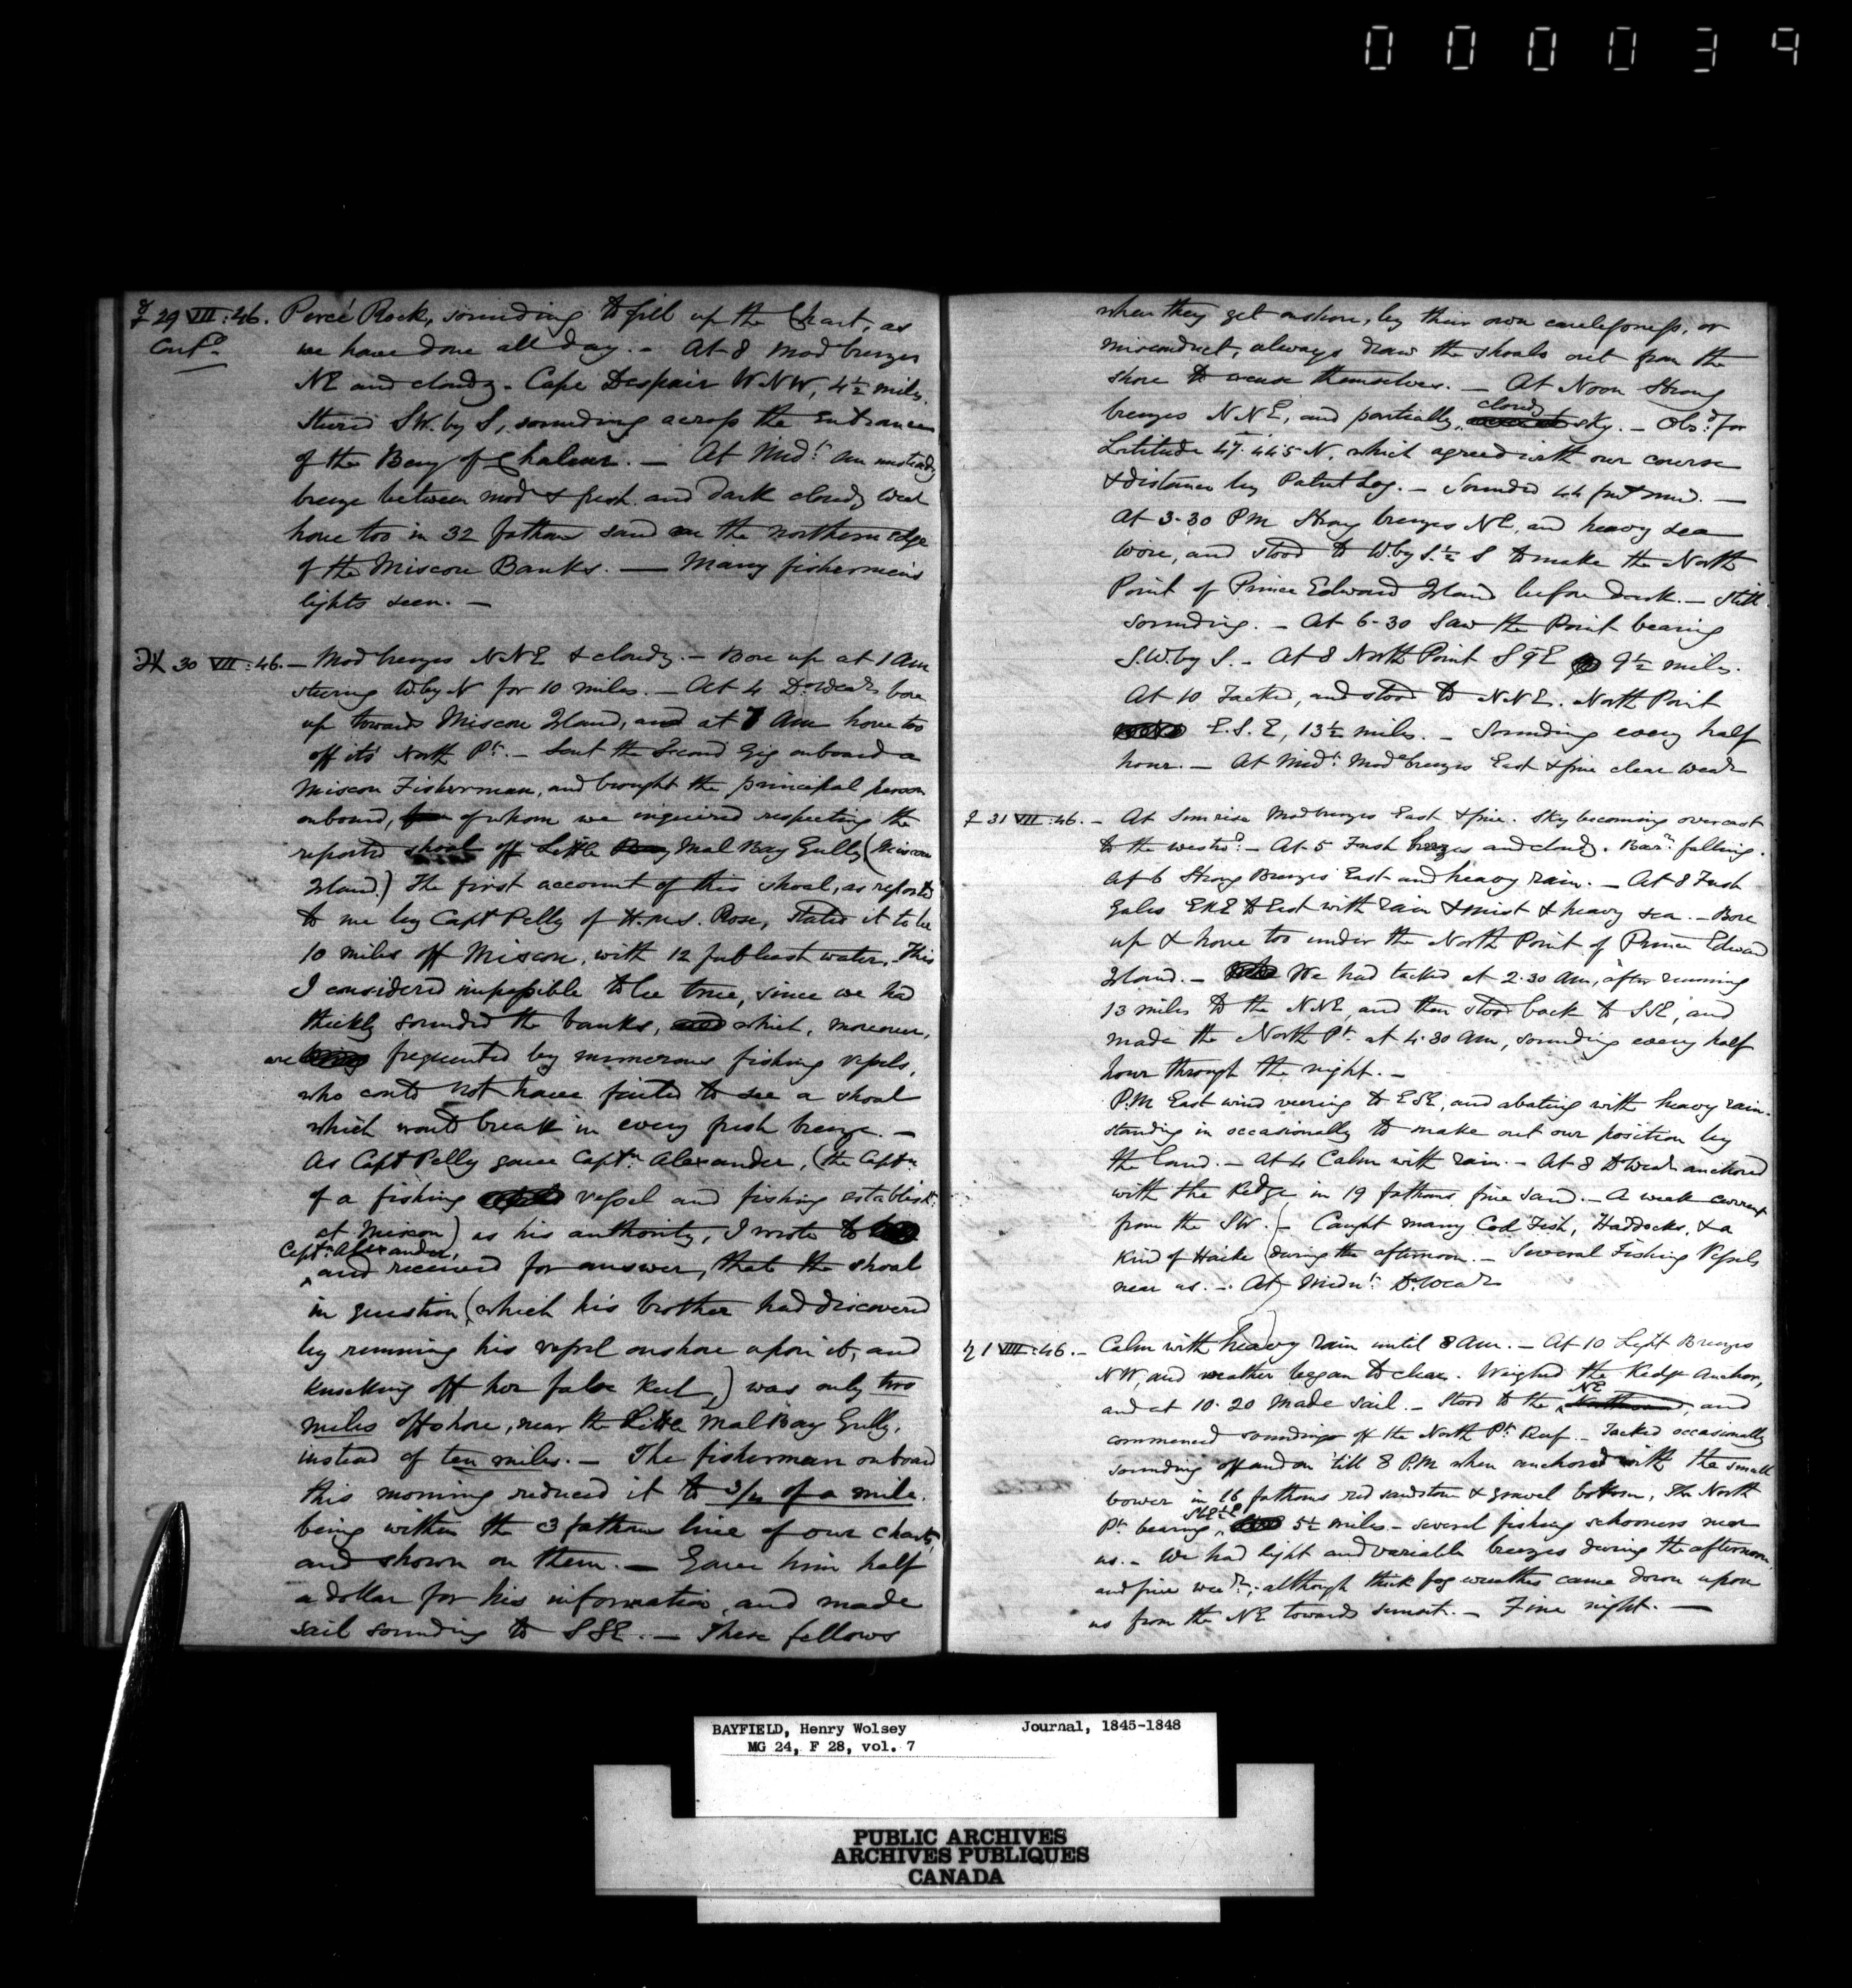 000039
☿ 29 VII:46. Percé Rock, sounding to fill up the Chart, as
Contd. we have done all day. - At 8 Mod breezes
NE and cloudy - Cape Despair WNW, 4½ miles.
Steered SW. by S, sounding across the Entrance
of the Bay of Chaleur. — At Midt. an unsteady
breeze between mod & fresh and dark cloudy Wear
hove too in 32 fathoms sand on the northern edge
of the Miscou Banks. — Many fishermen's
lights seen. —
♃ 30 VII:46. — Mod breezes NNE & cloudy. - Bore up at 1 Am
steering W. by N for 10 miles. - At 4 Do. Wear bore
up towards Miscou Island, and at 7 Am hove too
off its North Pt. - Sent the Second Gig onboard a
Miscou Fisherman, and brought the principal person
onboard, of whom we inquired respecting the
reported shoal off Little Mal Bay Gully (Miscou
Island.) The first account of this shoal, as reported
to me by Capt Pelly of H.M.S. Rose, stated it to be
10 miles off Miscou, with 12 feet least water. This
I considered impossible to be true, since we had
thickly sounded the banks, and which, moreover,
are being frequented by numerous fishing vessels,
who could not have failed to see a shoal
which would break in every fresh breeze. —
As Capt Pelly gave Captn. Alexander, (the Captn
of a fishing vessel and fishing establisht.
at Miscou) as his authority, I wrote to
Captn. Alexander,
and received for answer, that the shoal
in question (which his brother had discovered
by running his vessel onshore upon it, and
knocking off her false keel,) was only two
miles offshore, near the Little Mal Bay Gully,
instead of ten miles. — The fisherman onboard
this morning reduced it to 3/4 of a mile.
being within the 3 fathoms line of our charts,
and shown on them. — Gave him half
a dollar for his information, and made
sail sounding to SSE. — These fellows
when they get onshore, by their own carelessness, or
misconduct, always draw the shoals out from the
shore to excuse themselves. — At Noon Strong
cloudy
breezes NNE, and partially sky. — Obsd. for
Latitude 47.44.5 N. which agreed with our course
& distance by Patent Log. — Sounded 44 fms mud. —
At 3-30 PM Strong breezes NE, and heavy sea
Wore, and stood to W. by S. ½ S to make the North
Point of Prince Edward Island before dark. — Still
sounding. — At 6-30 Saw the Point bearing
S.W. by S. - At 8 North Point S 9 E 9½ miles.
At 10 Tacked, and stood to NNE. North Point
E.S.E, 13½ miles. — Sounding every half
hour. — At Midt. Mode breezes East & fine clear Wear
♀ 31 VII:46. - At Sunrise Mod breezes East & fine. Sky becoming overcast
to the westd. - At 5 Fresh breezes and cloudy. Barr. falling.
At 6 Strong Breezes East and heavy rain. — At 8 Fresh
Gales ENE to East with rain & mist & heavy sea. - Bore
up & hove too under the North Point of Prince Edward
Island. — We had tacked at 2.30 Am, after running
13 miles to the NNE, and then stood back to SSE, and
made the North Pt. at 4.30 Am, sounding every half
hour through the night. —
P.M East wind veering to ESE, and abating with heavy rain.
standing in occasionally to make out our position by
the land. — At 4 Calm with rain. - At 8 Do Wear anchored
with the Kedge in 19 fathoms fine sand. - A weak current
from the SW. - Caught many Cod Fish, Haddocks, & a
kind of Hake (during the afternoon. — Several Fishing Vessels
near us. — At) Midnt. Do. Wear
♄ 1 VIII:46. - Calm with heavy rain until 8 Am. — At 10 Light Breezes
NW, and weather began to clear. Weighed the Kedge Anchor,
NE
and at 10.20 Made sail. — Stood to the Northward, and
commenced soundings off the North Pt. Reef. — Tacked occasionally
sounding off and on 'till 8 P.M when anchored with the small
bower in 16 fathoms red sandstone & gravel bottom, The North
Pt. bearing 5½ miles - several fishing schooners near
us. - We had light and variable breezes during the afternoon
and fine wear., although thick fog wreathes came down upon
us from the NE towards sunset. — Fine night. —
BAYFIELD, Henry Wolsey Journal, 1845-1848
MG 24, F 28, vol. 7
PUBLIC ARCHIVES
ARCHIVES PUBLIQUES
CANADA